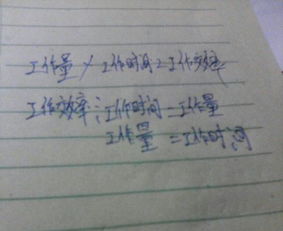 工作量×工作时间=工作效率
工作效率÷工作时间=工作量
工作量=工作时间